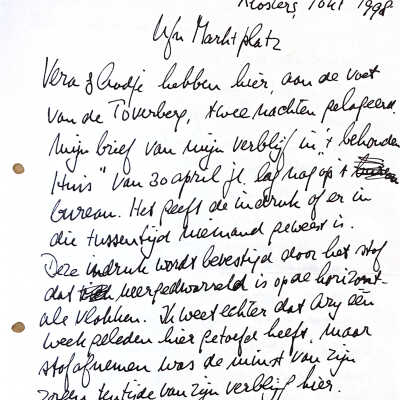 Klosters, 10 1998
Uf'n Marktplatz
Vera & hebben hier, aan de voet
van de Toverberg, twee nachten gelogeerd.
Mijn brief van mijn verblijf in "'t behouden
Huis" van 30 april jl. lag nog op 't
bureau. Het geeft de indruk of er in
die tussentijd niemand geweest is.
Deze indruk wordt bevestigd door het stof
dat neergedwarreld is op de horizont-
ale vlakken. Ik weet echter dat Ary één
week geleden hier getoefd heeft, maar
stof afnemen was de minst van zijn
zorgen tentijde van zijn verblijf hier.